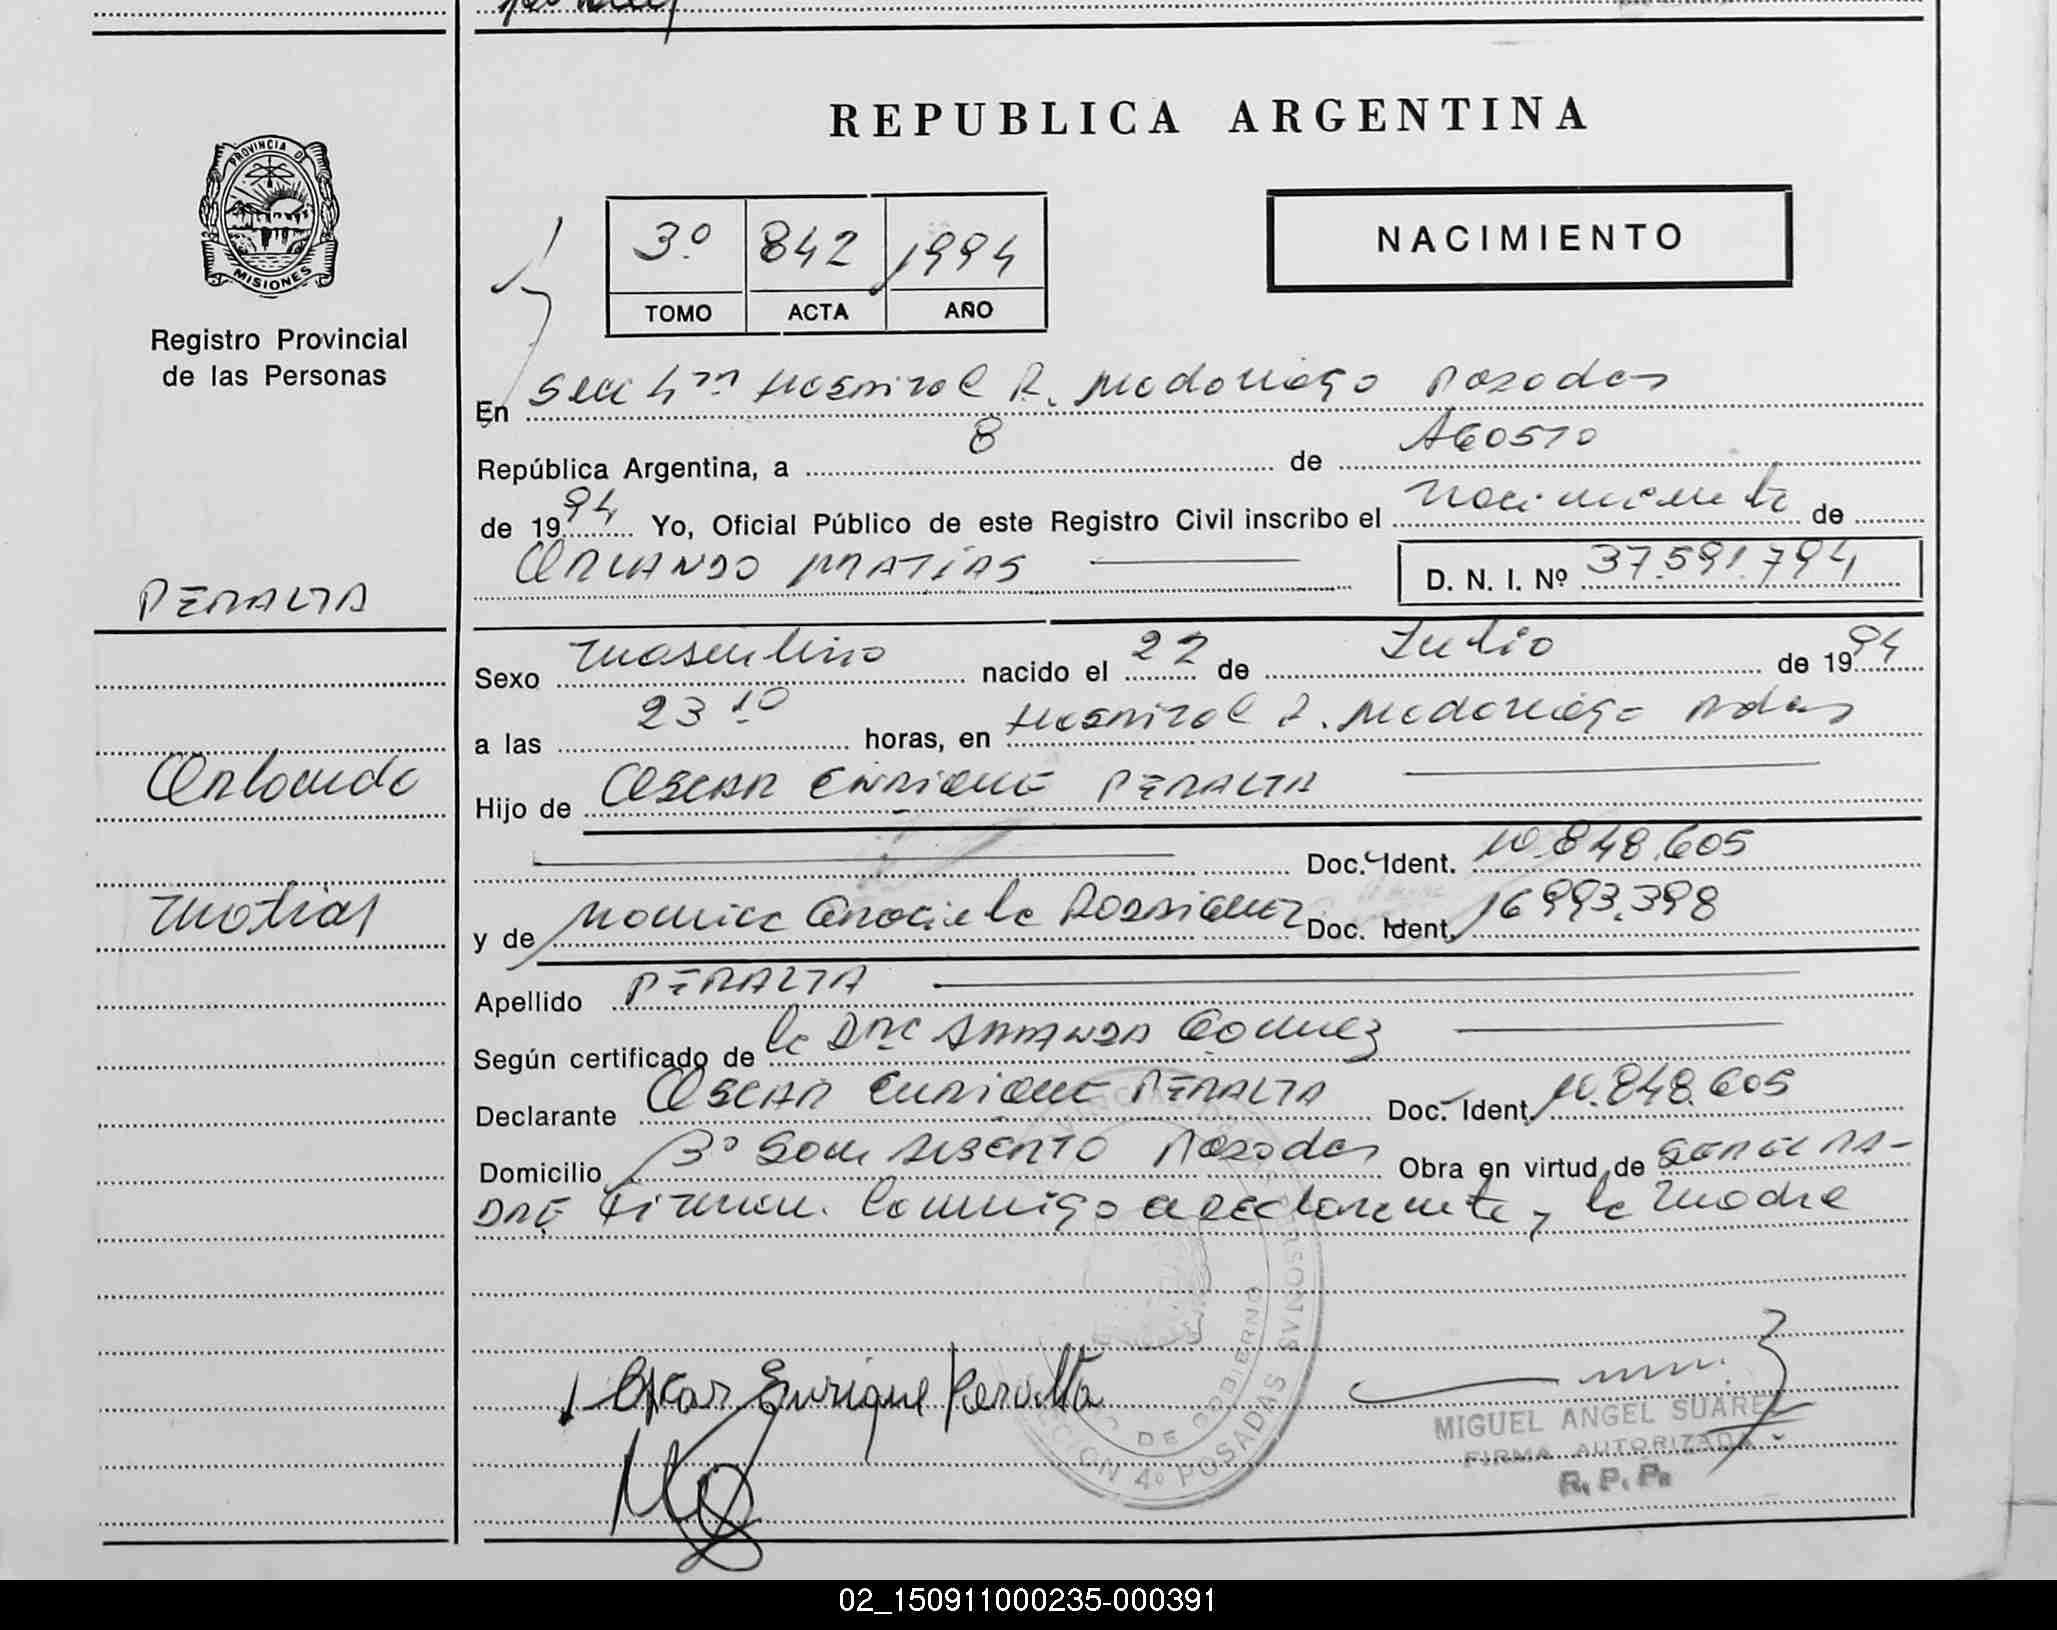 REPUBLICA ARGENTINA
PROVINCIA DE
MISIONES
Registro Provincial
de las Personas
3º 842 1994
TOMO ACTA AÑO
NACIMIENTO
En Secc 4ta Hospital R. Madariaga Posadas
República Argentina, a 8 de AGOSTO
de 1994 Yo, Oficial Público de este Registro Civil inscribo el nacimiento de
ORLANDO MATIAS D. N. I. Nº 37.591.794
PERALTA
Sexo masculino nacido el 22 de Julio de 1994
a las 23 10 horas, en Hospital R. Madariaga Pdas
Orlando
Hijo de OSCAR ENRIQUE PERALTA
Doc. Ident. 10.848.605
Matias
y de Graciela RODRIGUEZ Doc. Ident. 16993.398
Apellido PERALTA
Según certificado de la DRA AMANDA Gomez
Declarante OSCAR ENRIQUE PERALTA Doc. Ident. 10.848.605
Domicilio Posadas Obra en virtud de SER EL PA-
DRE Firman conmigo declarante y la madre
Oscar Enrique Peralta
DE GOBIERNO
SECCION 4º POSADAS
MIGUEL ANGEL SUAREZ
FIRMA AUTORIZADA
R. P. P.
02_150911000235-000391